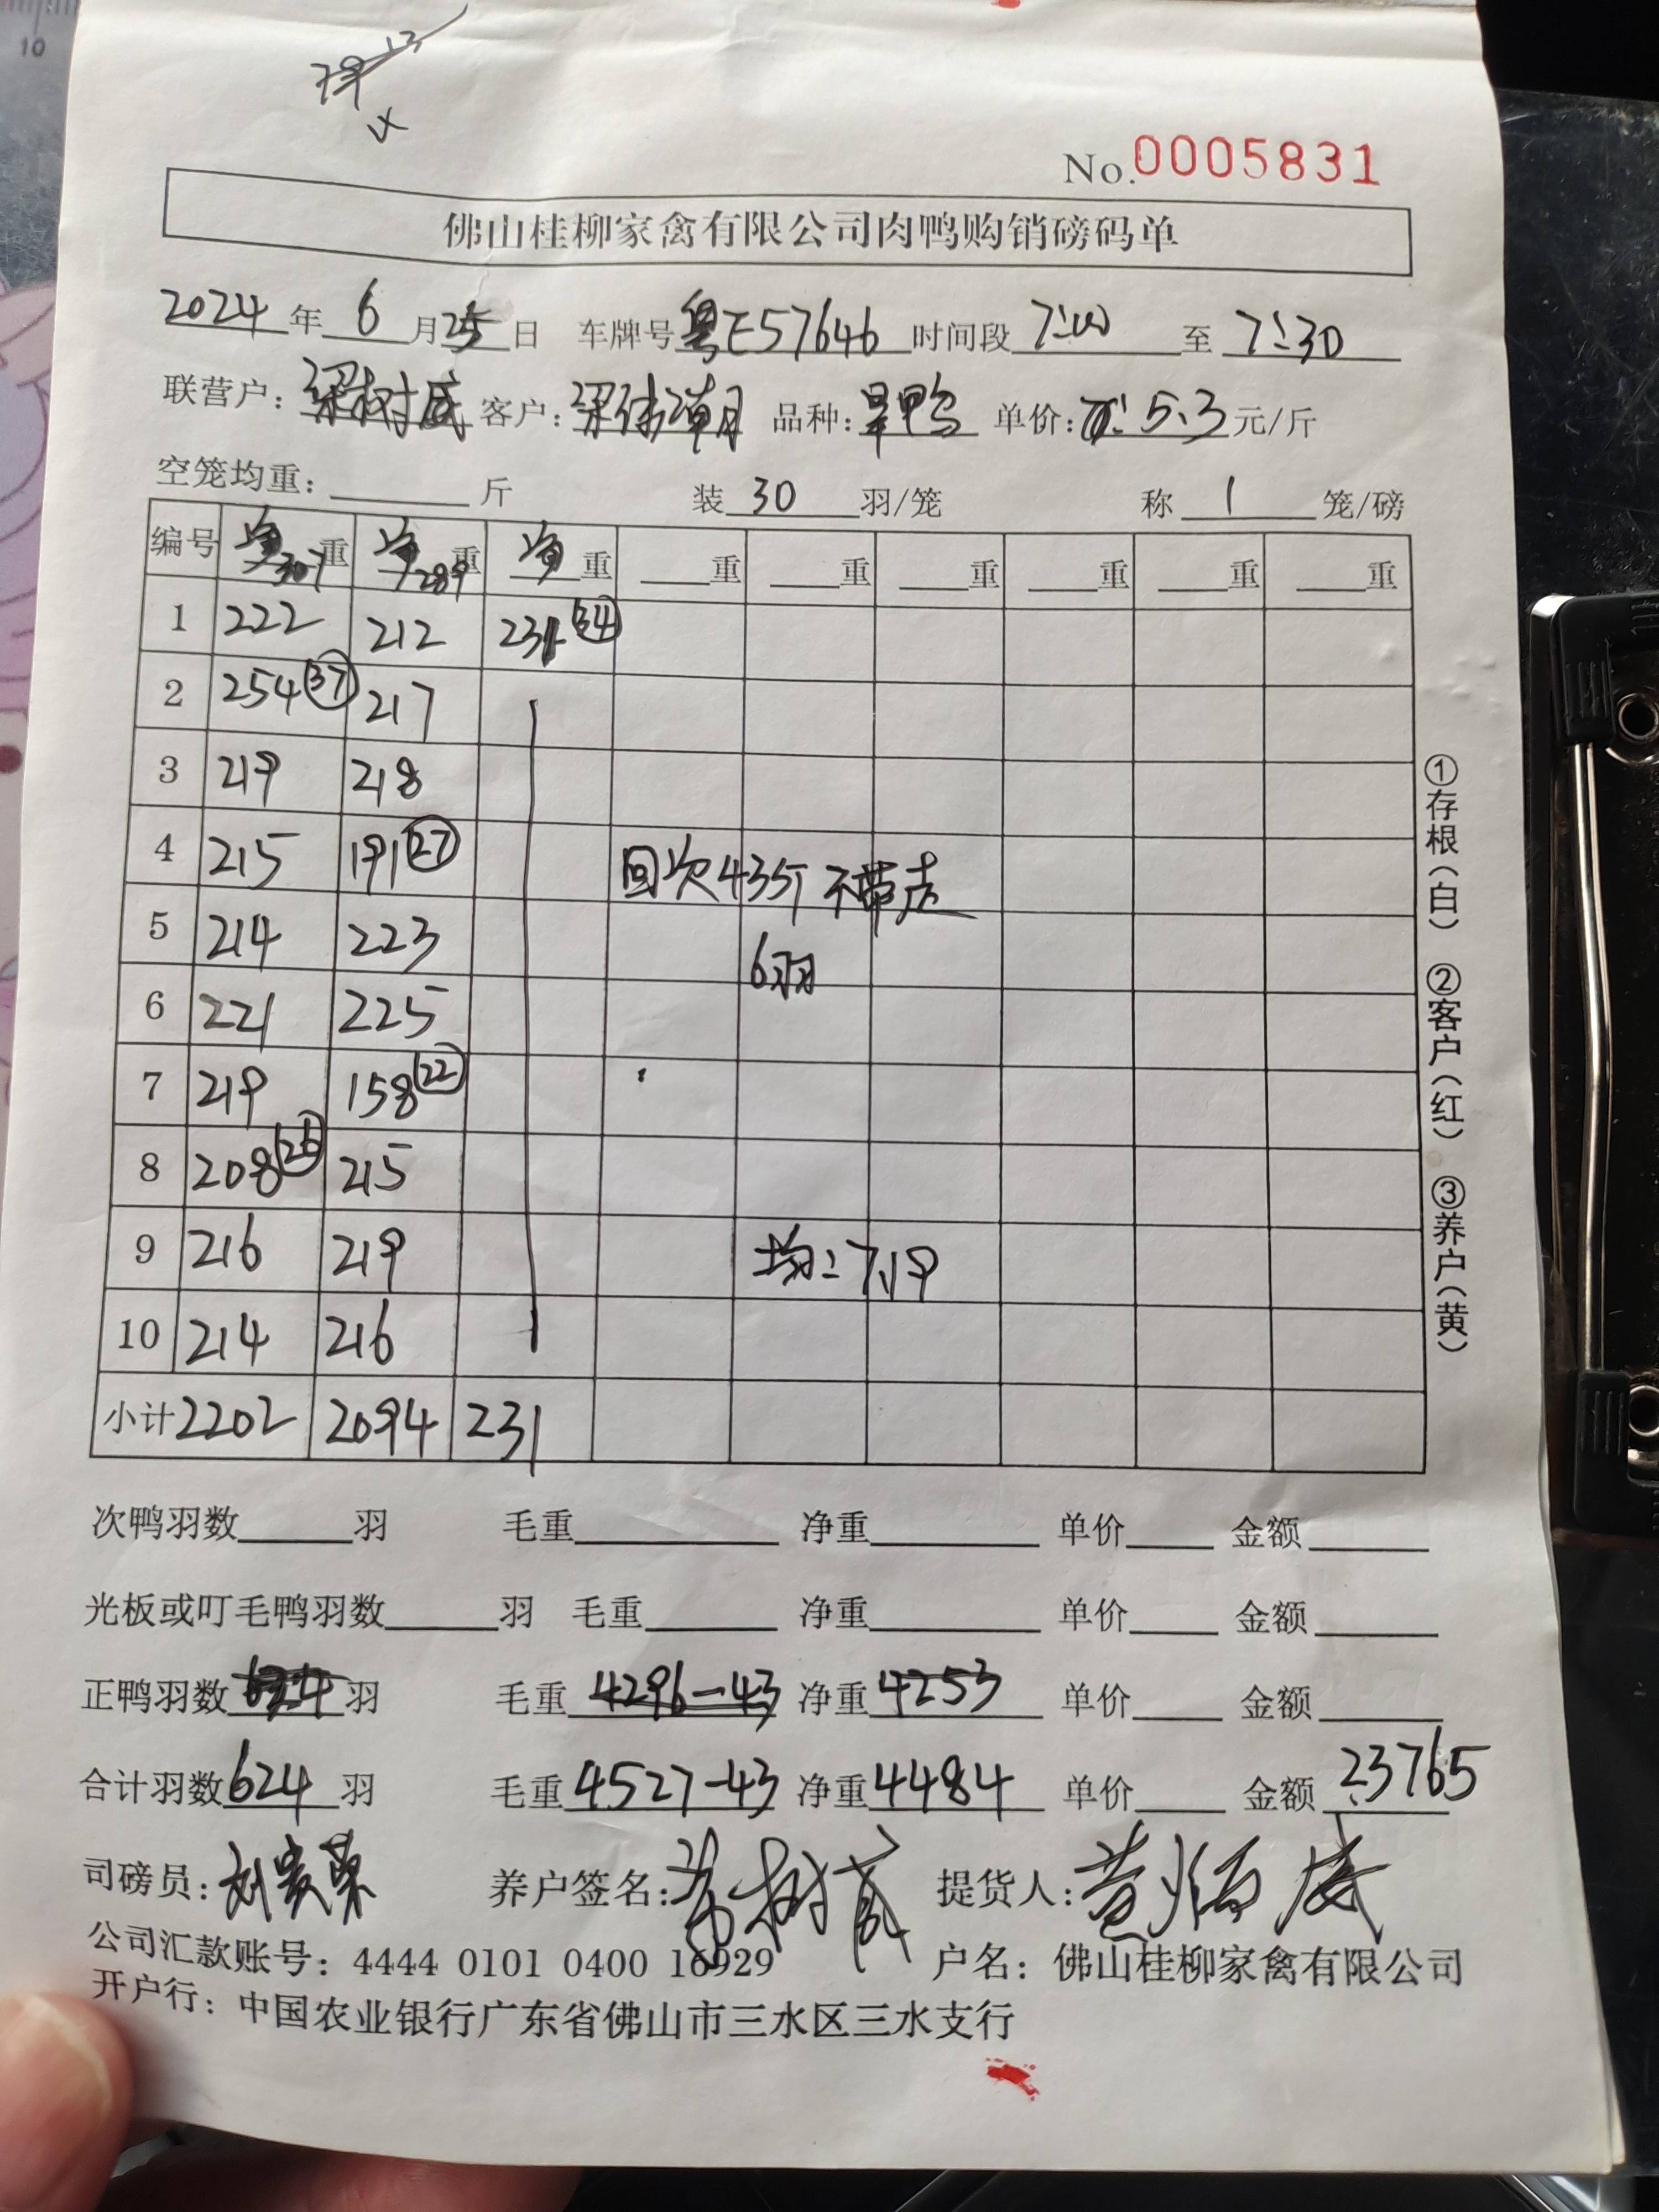 10
No.0005831
佛山桂柳家禽有限公司肉鸭购销磅码单
2024年6月25日 车牌号粤E57646 时间段7:00至7:30
联营户:梁树威 客户: 品种: 鸭 单价: 5.3元/斤
空笼均重: 斤 装30羽/笼 称1笼/磅
编号 净307重 净289重 净重 重 重 重 重 重 重
1 222 212 231 34
2 254 37 217
3 219 218
4 215 191 27
回次43斤不带走
5 214 223
6羽
6 221 225
7 219 158 22
8 208 26 215
9 216 219 均:7.19
10 214 216
小计 2202 2094 231
①存根(白) ②客户(红) ③养户(黄)
次鸭羽数 羽 毛重 净重 单价 金额
光板或叮毛鸭羽数 羽 毛重 净重 单价 金额
正鸭羽数 羽 毛重4296-43 净重4253 单价 金额
合计羽数624羽 毛重4527-43 净重4484 单价 金额23765
司磅员: 养户签名: 提货人:
公司汇款账号: 4444 0101 0400 16929 户名: 佛山桂柳家禽有限公司
开户行: 中国农业银行广东省佛山市三水区三水支行